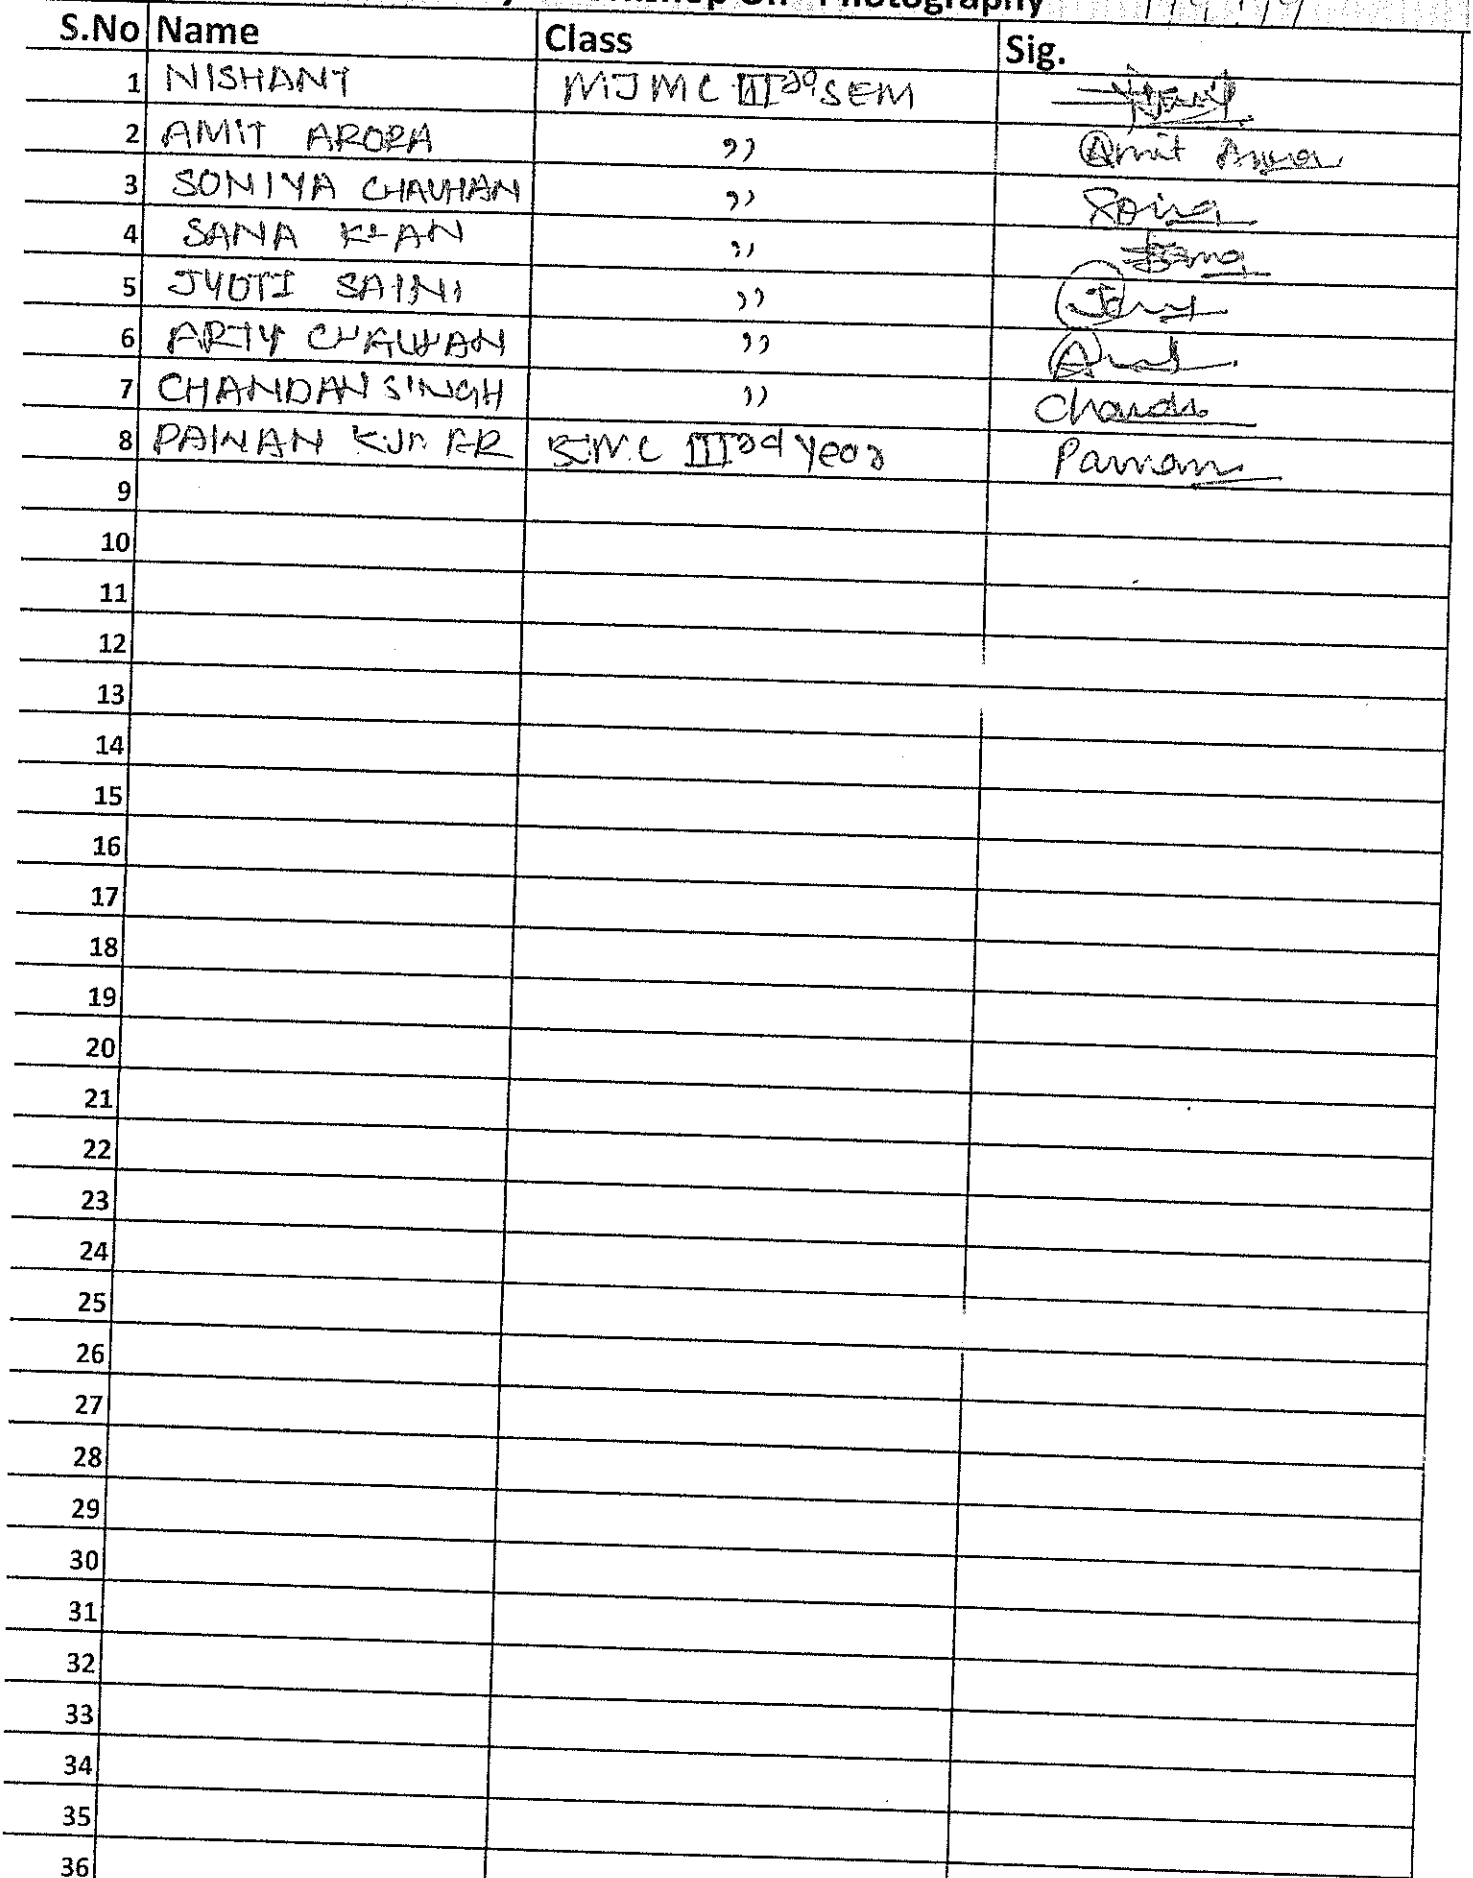 Workshop On "Photography
S.No Name Class Sig.
1 NISHANT MJMC IIIrd SEM
2 AMIT ARORA ,, Amit Arora
3 SONIYA CHAUHAN ,,
4 SANA KHAN ,, Sana
5 JYOTI SAINI ,,
6 ARTY CHAUHAN ,,
7 CHANDAN SINGH ,, Chandn
8 PAWAN KUMAR B.M.C IIIrd Year Pawan
9
10
11
12
13
14
15
16
17
18
19
20
21
22
23
24
25
26
27
28
29
30
31
32
33
34
35
36